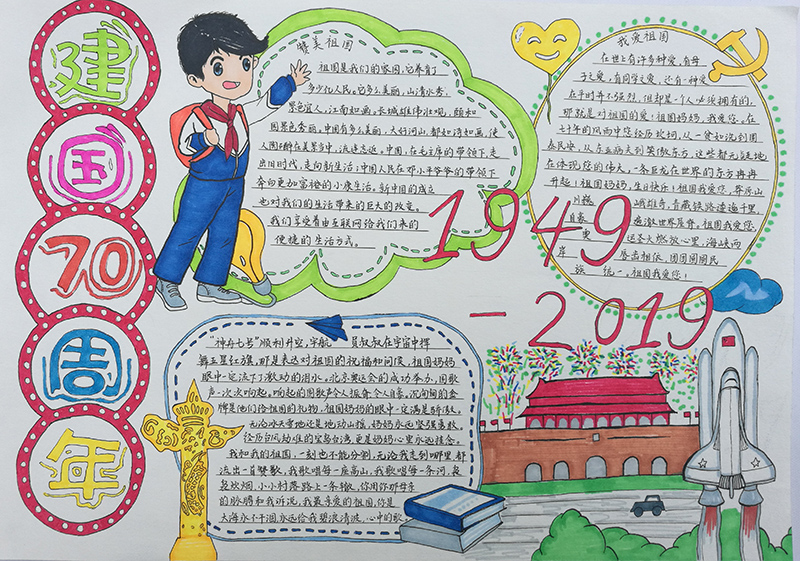 建
国
70
周
年
赞美祖国
祖国是我们的家园,它养育了
多少亿人民。它多么美丽,山清水秀,
景色宜人,江南如画。长城雄伟壮观,颐和
园景色秀丽。中国有多么美丽,大好河山,都如诗如画,使
人陶醉在美景当中,流连忘返。中国,在毛主席的带领下,走
出旧时代,走向新生活;中国人民在邓小平爷爷的带领下
奔向更加富裕的小康生活。新中国的成立
也对我们的生活带来的巨大的改变。
我们享受着由互联网给我们来的
便捷的生活方式。
我爱祖国
在世上有许多种爱,有母
子之爱,有同学之爱,还有一种爱
在平时并不强烈,但却是一个人必须拥有的,
那就是对祖国的爱!祖国妈妈,我爱您,在
七十年的风雨中您经历坎坷,从一贫如洗到国
泰民安,从东亚病夫到笑傲东方,这些都无疑地
在体现您的伟大,一条巨龙在世界的东方冉冉
升起!祖国妈妈,生日快乐!祖国我爱您,尊严山
川巍 峨雄奇,青藏铁路逶迤千里,
自豪 遍激世界屋脊。祖国我爱您,
奥 运圣火燃放心里,海峡两
岸 唇齿相依,团团圆圆民
族 统一。祖国我爱您!
1949
-2019
"神舟七号"顺利升空,宇航 员叔叔在宇宙中挥
舞五星红旗,那是表达对祖国的祝福和问候,祖国妈妈
眼中一定流下了激动的泪水,北京奥运会的成功举办,国歌
声一次次响起,响起的国歌声令人振奋令人自豪,沉甸甸的金
牌是他们给祖国的礼物,祖国妈妈的眼中一定满是骄傲。
无论冰天雪地还是地动山摇,妈妈永远坚强勇敢
经历百风劫难的宝岛台湾,更是妈妈心里永远挂念
我和我的祖国,一刻也不能分割,无论我走到哪里都
流出一首赞歌,我歌唱每一座高山,我歌唱每一条河,袅
袅炊烟,小小村落,路上一条辙,你用你那母亲
的脉搏和我诉说,我最亲爱的祖国,你是
大海永不干涸,永远给我碧浪清波,心中的歌。